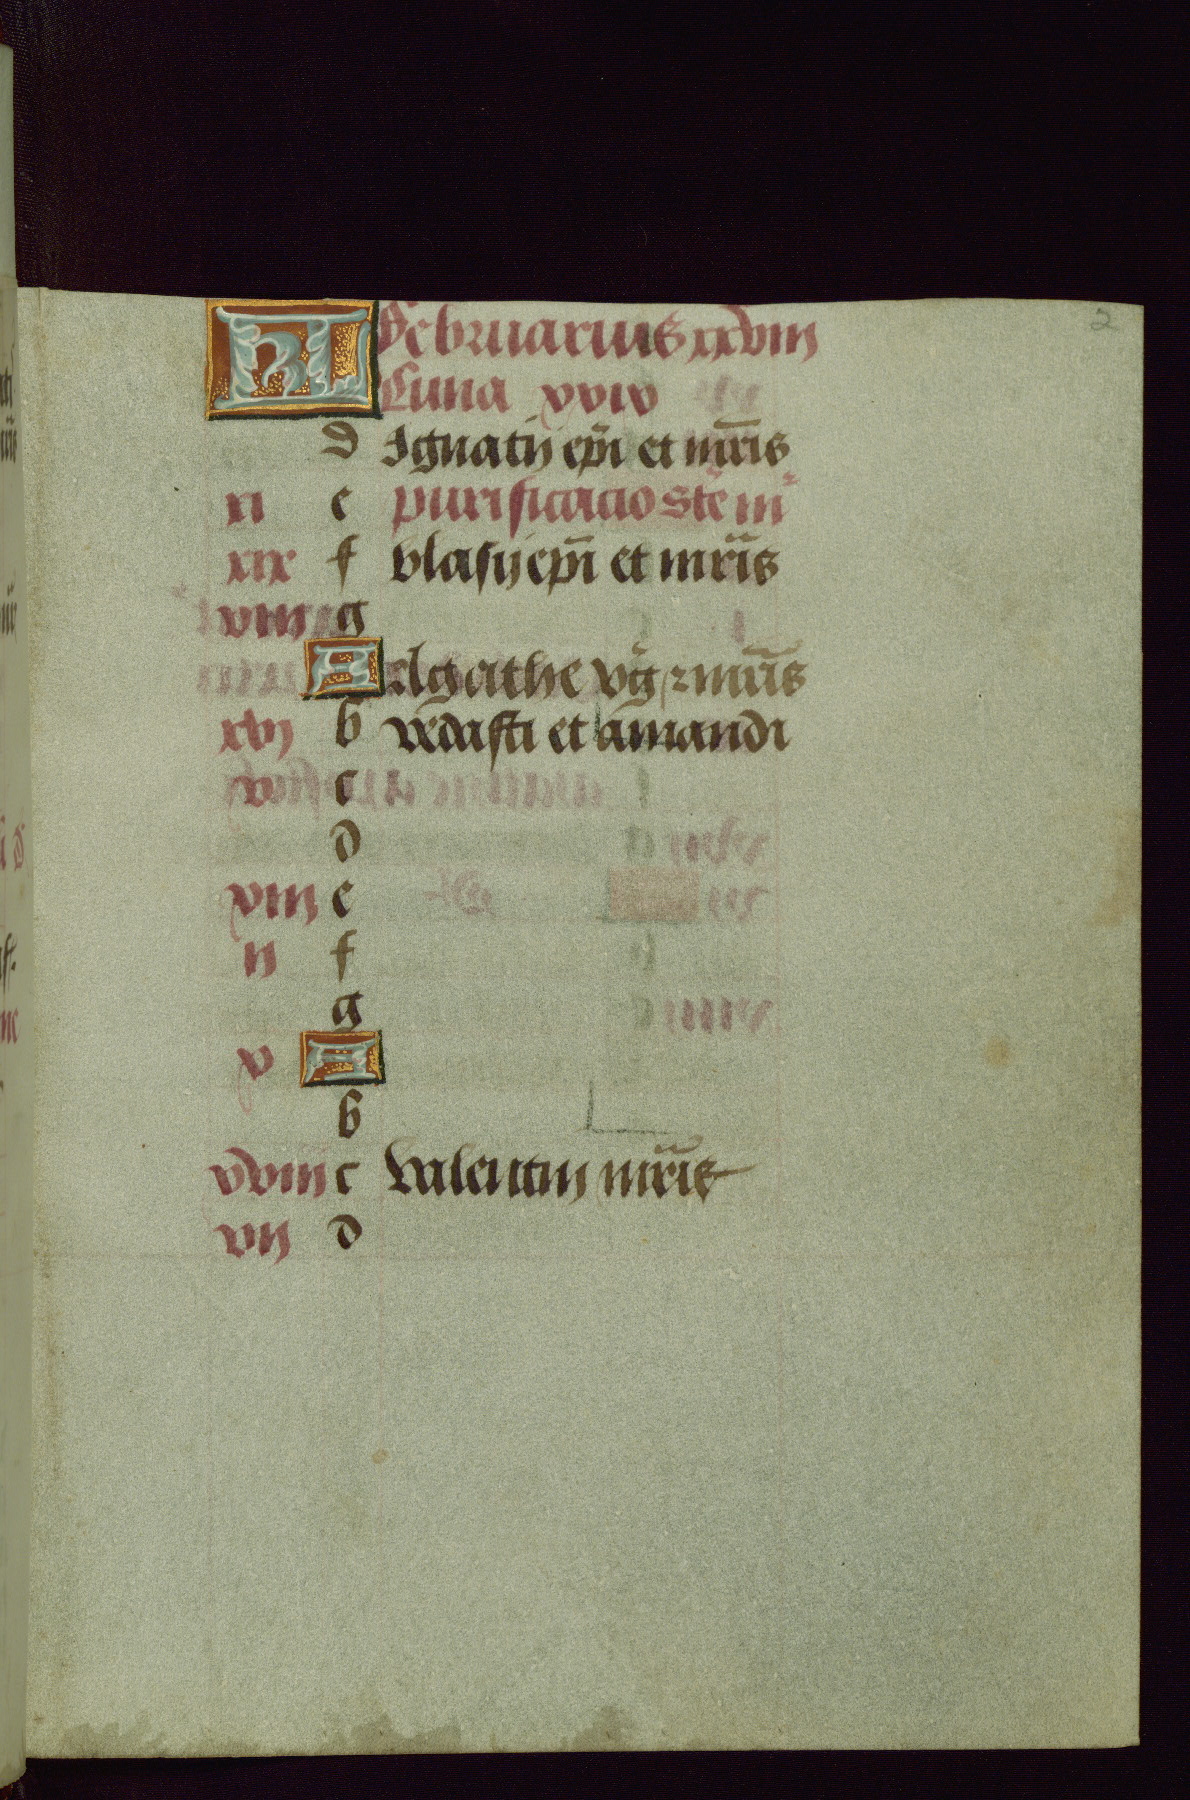 2
KL Februarius xxviii
Luna xxix
d Ignatij ep̄i et mr̄is
xi e purificacio ste m
xix f blasij ep̄i et mr̄is
viii g
A Agathe v̄g 2 mr̄is
xvj b vedasti et amandi
v c
d
xiii e
ii f
g
x A
b
xviii c valentinj mr̄is
vii d